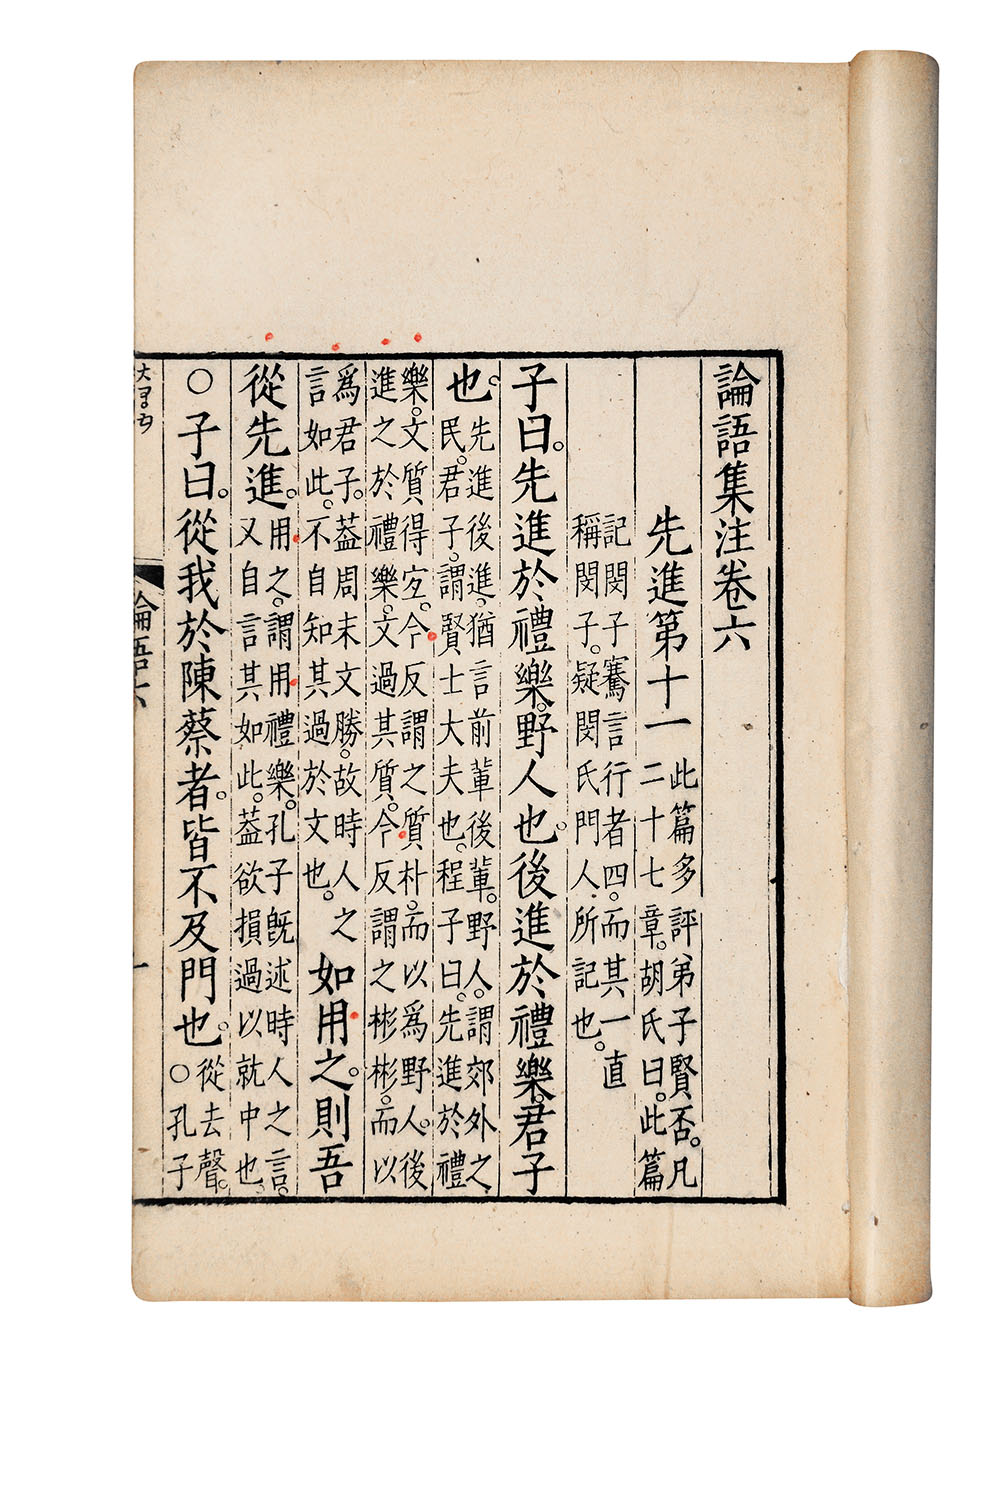 論語集注卷六
先進第十一
此篇多評弟子賢否。凡
二十七章。胡氏曰。此篇
記閔子騫言行者四。而其一直
稱閔子。疑閔氏門人所記也。
子曰。先進於禮樂。野人也。後進於禮樂。君子
也。
先進後進。猶言前輩後輩。野人。謂郊外之
民。君子。謂賢士大夫也。程子曰。先進於禮
樂。文質得宐。今反謂之質朴。而以爲野人。後
進之於禮樂。文過其質。今反謂之彬彬。而以
爲君子。葢周末文勝。故時人之
言如此。不自知其過於文也。
如用之。則吾
從先進。
用之。謂用禮樂。孔子旣述時人之言。
又自言其如此。葢欲損過以就中也。
○子曰。從我於陳蔡者。皆不及門也。
從去聲。
○孔子
論語六
一